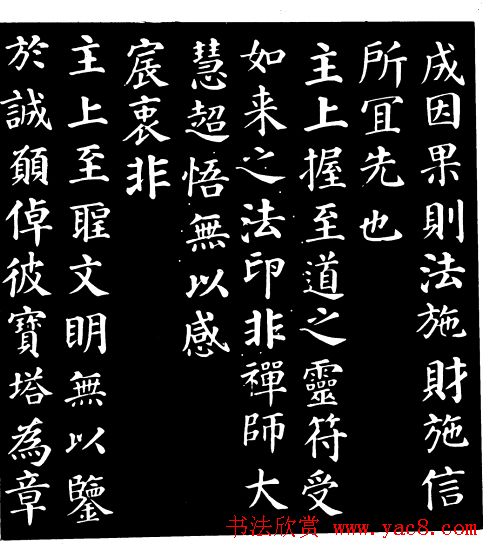 成因果則法施財施信
所冝先也
主上握至道之靈符受
如来之法印非禪師大
慧超悟無以感
宸衷非
主上至聖文明無以鑒
於誠願倬彼寶塔為章
书法欣赏 www.yac8.com